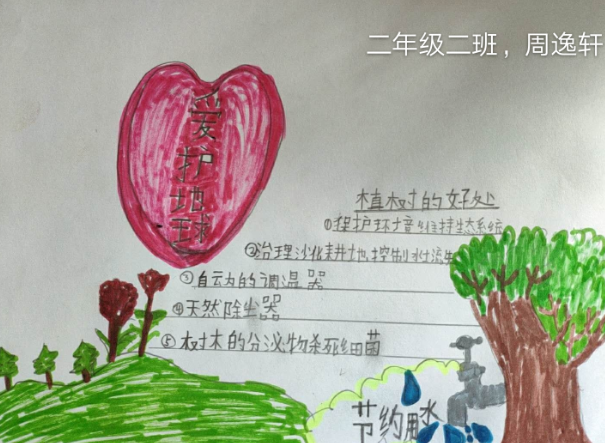 二年级二班，周逸轩
爱护地球
植树的好处
①保护环境维持生态系统
②治理沙化耕地控制水土流失
③自动的调温器
④天然除尘器
⑤树木的分泌物杀死细菌
节约用水